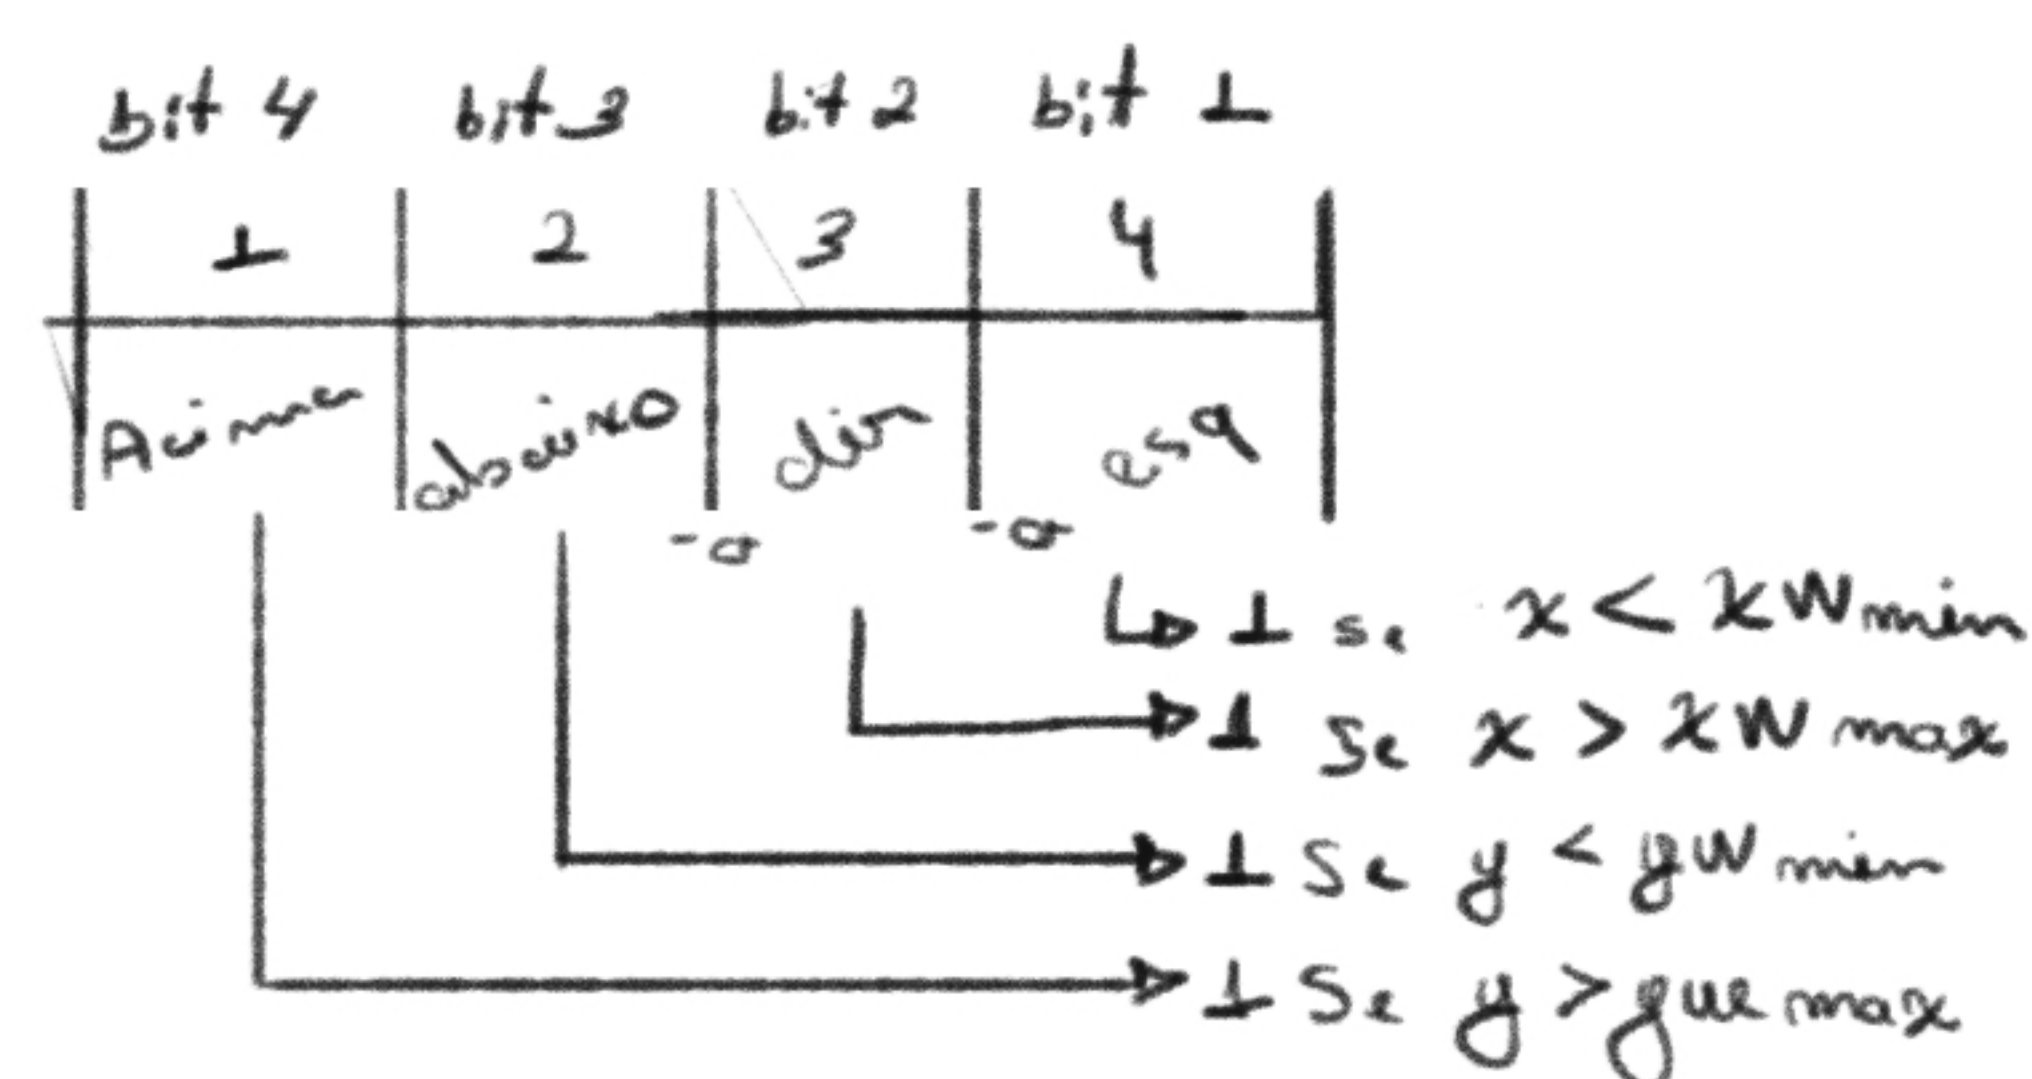 bit 4 bit 3 bit 2 bit 1
1 2 3 4
Acima abaixo dir esq
1 se x < xwmin
1 se x > xwmax
1 se y < ywmin
1 se y > ywmax